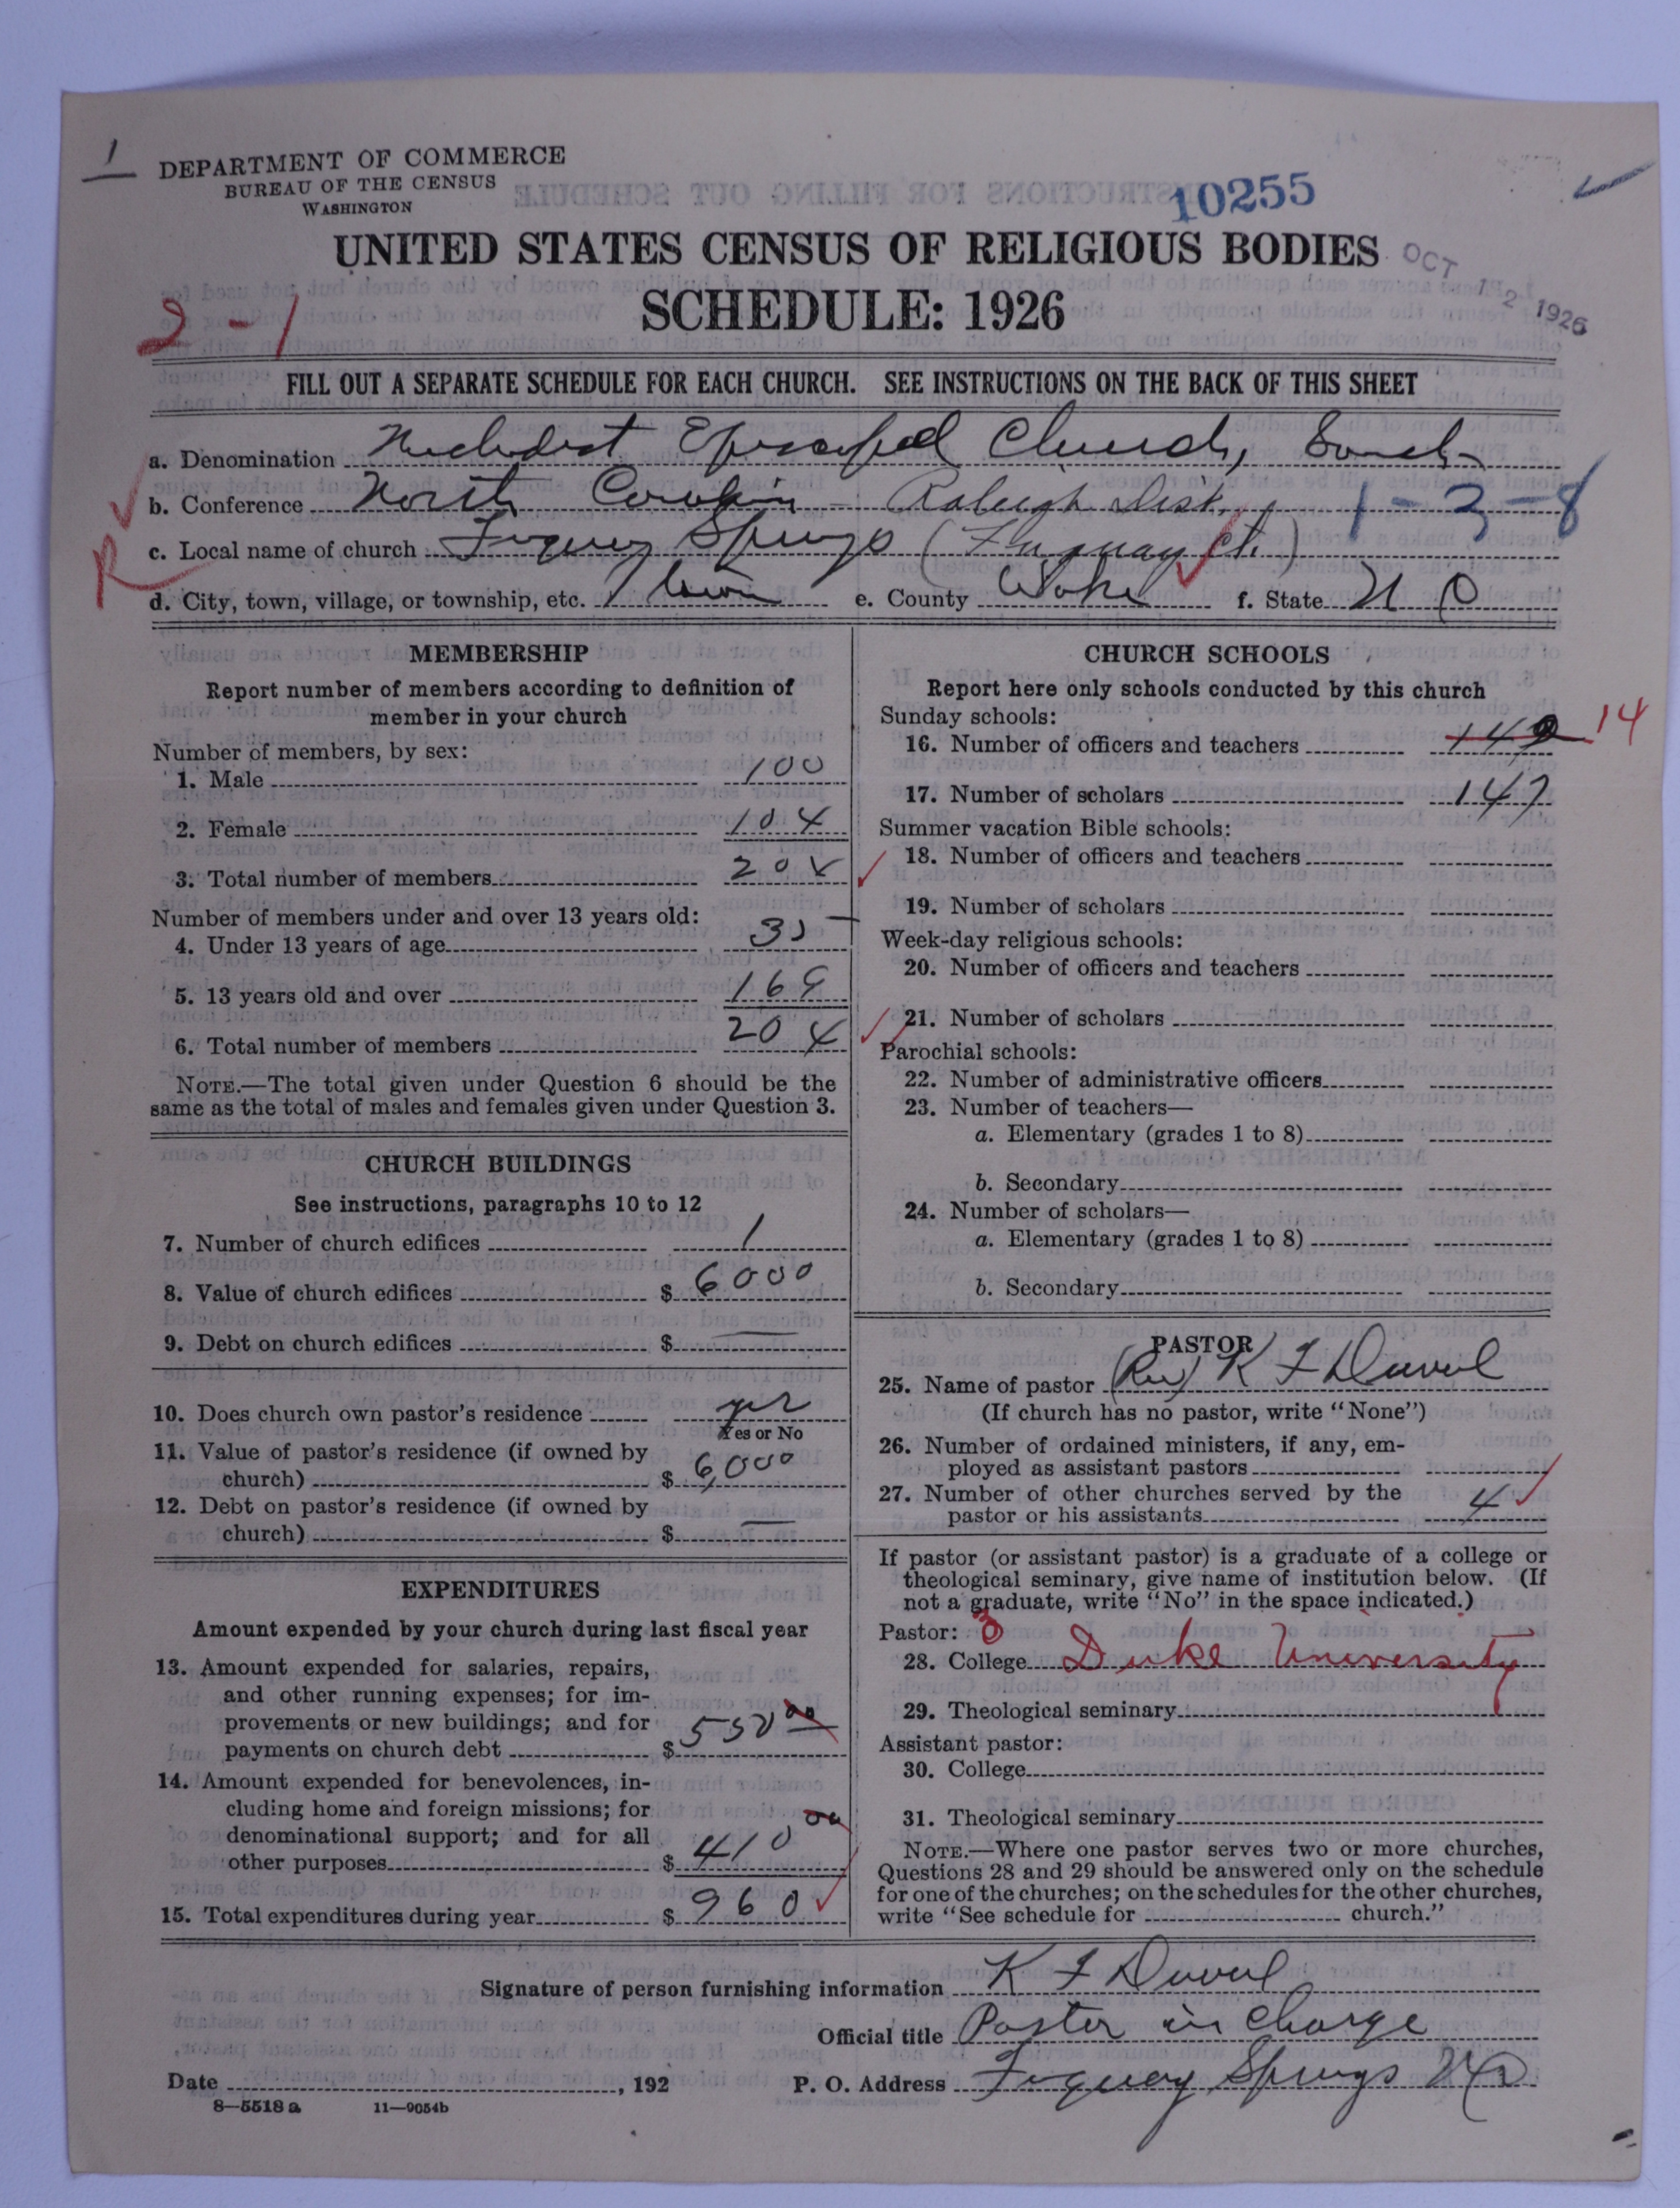 1
DEPARTMENT OF COMMERCE
BUREAU OF THE CENSUS
WASHINGTON
10255
UNITED STATES CENSUS OF RELIGIOUS BODIES
OCT 12 1926
SCHEDULE: 1926
2-1
FILL OUT A SEPARATE SCHEDULE FOR EACH CHURCH. SEE INSTRUCTIONS ON THE BACK OF THIS SHEET
a. Denomination Methodist Episcopal Church, South
b. Conference North Carolina - Raleigh Dist. 1-3-8
c. Local name of church Fuquay Springs (Fuquay Ct.)
R
d. City, town, village, or township, etc. Town e. County Wake f. State N C
MEMBERSHIP
Report number of members according to definition of
member in your church
Number of members, by sex:
1. Male 100
2. Female 104
3. Total number of members 204
Number of members under and over 13 years old:
4. Under 13 years of age 35
5. 13 years old and over 169
6. Total number of members 204
NOTE.—The total given under Question 6 should be the
same as the total of males and females given under Question 3.
CHURCH BUILDINGS
See instructions, paragraphs 10 to 12
7. Number of church edifices 1
8. Value of church edifices $ 6000
9. Debt on church edifices $ —
10. Does church own pastor's residence yes
Yes or No
11. Value of pastor's residence (if owned by
church) $ 6,000
12. Debt on pastor's residence (if owned by
church) $ —
EXPENDITURES
Amount expended by your church during last fiscal year
13. Amount expended for salaries, repairs,
and other running expenses; for im-
provements or new buildings; and for
payments on church debt $ 550 00
14. Amount expended for benevolences, in-
cluding home and foreign missions; for
denominational support; and for all
other purposes $ 410 00
15. Total expenditures during year $ 960
CHURCH SCHOOLS
Report here only schools conducted by this church
Sunday schools:
16. Number of officers and teachers 14
17. Number of scholars 147
Summer vacation Bible schools:
18. Number of officers and teachers
19. Number of scholars
Week-day religious schools:
20. Number of officers and teachers
21. Number of scholars
Parochial schools:
22. Number of administrative officers
23. Number of teachers—
a. Elementary (grades 1 to 8)
b. Secondary
24. Number of scholars—
a. Elementary (grades 1 to 8)
b. Secondary
PASTOR
25. Name of pastor (Rev) K F Duval
(If church has no pastor, write "None")
26. Number of ordained ministers, if any, em-
ployed as assistant pastors
27. Number of other churches served by the
pastor or his assistants 4
If pastor (or assistant pastor) is a graduate of a college or
theological seminary, give name of institution below. (If
not a graduate, write "No" in the space indicated.)
Pastor: 3
28. College Duke University
29. Theological seminary
Assistant pastor:
30. College
31. Theological seminary
NOTE.—Where one pastor serves two or more churches,
Questions 28 and 29 should be answered only on the schedule
for one of the churches; on the schedules for the other churches,
write "See schedule for church."
Signature of person furnishing information K F Duval
Official title Pastor in charge
Date , 192 P. O. Address Fuquay Springs N C
8—5518 a 11—9054b